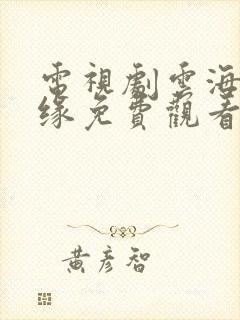 電視劇雲海
緣免費觀看
黃彥智